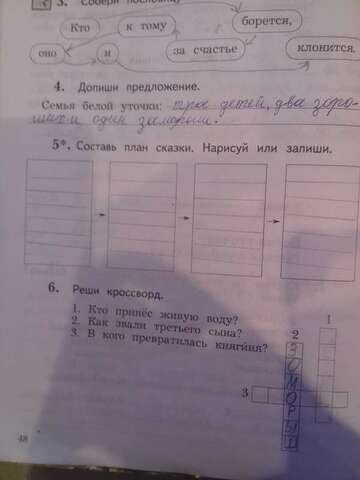 3. Собери пословицу
Кто
к тому
борется,
оно
и
за счастье
клонится.
4. Допиши предложение.
Семья белой уточки: трое детей, два хоро-
ших и один заморыш.
5*. Составь план сказки. Нарисуй или запиши.
6. Реши кроссворд.
1. Кто принёс живую воду?
2. Как звали третьего сына?
3. В кого превратилась княгиня?
1
2
З
М
3
О
Р
Ы
Ш
48